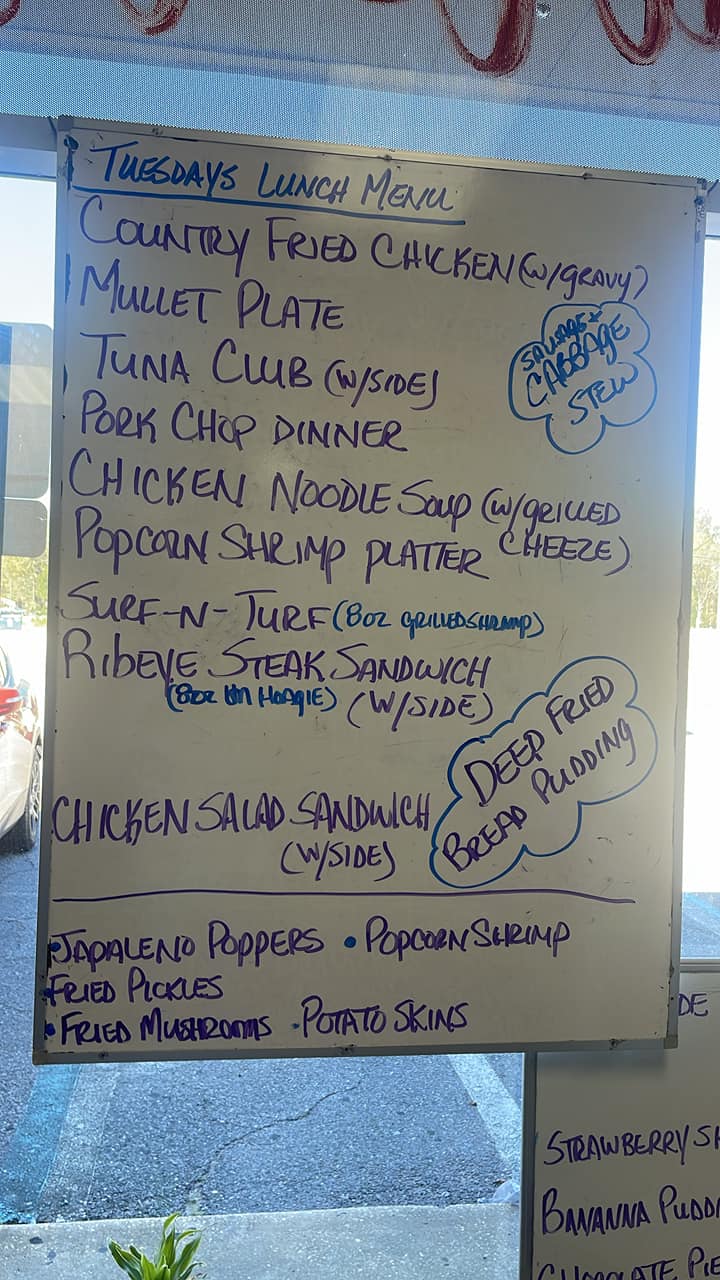 TUESDAYS LUNCH MENU
COUNTRY FRIED CHICKEN (W/GRAVY)
MULLET PLATE
TUNA CLUB (W/SIDE)
SAUSAGE +
CABBAGE
STEW
PORK CHOP DINNER
CHICKEN NOODLE SOUP (W/GRILLED
CHEEZE)
POPCORN SHRIMP PLATTER
SURF-N-TURF (8oz GRILLED SHRIMP)
RIBEYE STEAK SANDWICH
(8oz ON HOAGIE) (W/SIDE)
DEEP FRIED
BREAD PUDDING
CHICKEN SALAD SANDWICH
(W/SIDE)
•JAPALENO POPPERS •POPCORN SHRIMP
•FRIED PICKLES
•FRIED MUSHROOMS •POTATO SKINS
DE
STRAWBERRY SH
BANANNA PUDDI
CHOCOLATE PIE